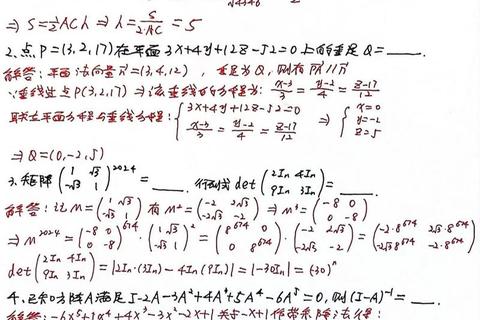 ⇒ S=½ACh ⇒ h = S/(½AC) = 5
2.点P=(3,2,17)在平面3x+4y+12z-52=0上的垂足Q=____.
解答:平面法向量n=(3,4,12),垂足为Q,则有PQ//n
∵垂线过点P(3,2,17)⇒该垂线的方程为: (x-3)/3=(y-2)/4=(z-17)/12
联立平面方程与垂线方程:{3x+4y+12z-52=0, (x-3)/3=(y-2)/4=(z-17)/12 ⇒ {x=0, y=-2, z=5
⇒Q=(0,-2,5)
3.矩阵(1 √3; -√3 1)^2024=____. 行列式det(2In 4In; 9In 3In)=____
解答:记M=(1 √3; -√3 1) 有M²=(-2 2√3; -2√3 -2)⇒M³=(-8 0; 0 -8)
⇒M^2024=(-8 0; 0 -8)^674·(1 √3; -√3 1)²=(8^674 0; 0 8^674)·(-2 2√3; -2√3 -2)=(-2·8^674 2√3·8^674; -2√3·8^674 -2·8^674)
det(2In 4In; 9In 3In)=|2In·(3In)-4In(9In)|=|-30In|=(-30)^n
4.已知方阵A满足I-2A-3A²+4A³+5A⁴-6A⁵=0,则(I-A)^-1=____.